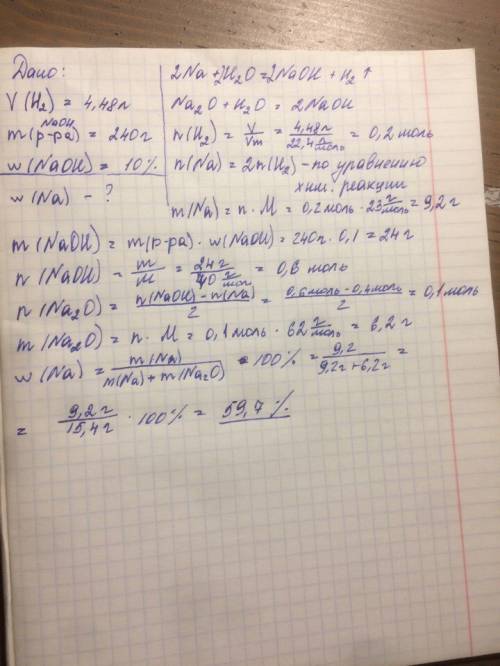 Дано:
V(H₂) = 4,48л
NaOH
m(р-ра) = 240г
w(NaOH) = 10%
w(Na) - ?
2Na + 2H₂O = 2NaOH + H₂↑
Na₂O + H₂O = 2NaOH
n(H₂) = V/Vm = 4,48л/22,4 л/моль = 0,2 моль
n(Na) = 2n(H₂) - по уравнению
хим. реакции
m(Na) = n · M = 0,2 моль · 23 г/моль = 9,2 г
m(NaOH) = m(р-ра) · w(NaOH) = 240г · 0,1 = 24г
n(NaOH) = m/M = 24г/40 г/моль = 0,6 моль
n(Na₂O) = n(NaOH) - n(Na)/2 = 0,6моль - 0,4моль/2 = 0,1моль
m(Na₂O) = n · M = 0,1моль · 62 г/моль = 6,2г
w(Na) = m(Na)/m(Na) + m(Na₂O) · 100% = 9,2/9,2г + 6,2г =
= 9,2г/15,4г · 100% = 59,7%